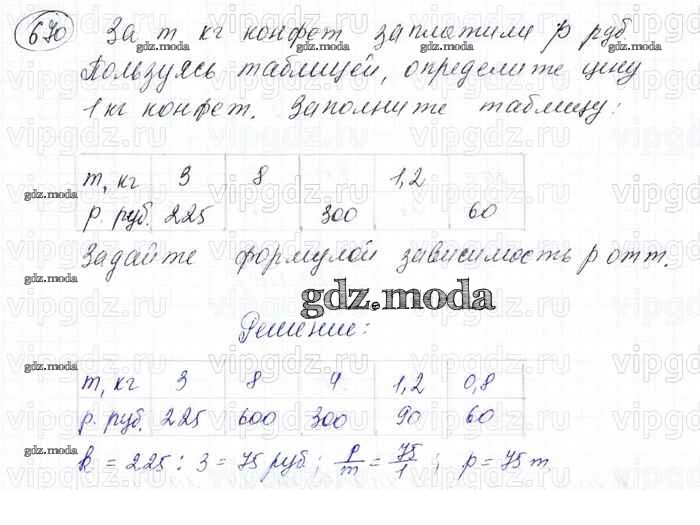 670 За m кг конфет заплатили p руб.
Пользуясь таблицей, определите цену
1 кг конфет. Заполните таблицу:
m, кг 3 8 1,2
p. руб. 225 300 60
Задайте формулой зависимость p от m.
gdz.moda
Решение:
m, кг 3 8 4 1,2 0,8
p. руб. 225 600 300 90 60
k = 225 : 3 = 75 руб ; p/m = 75/1 ; p = 75 m